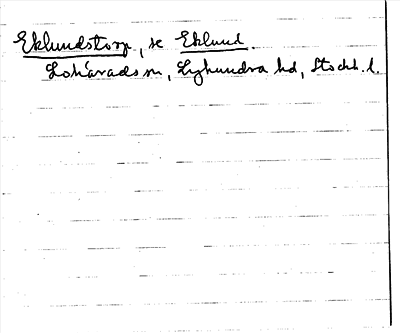 Eklundstorp, se Eklund.
Lohärads sn, Lyhundra hd, Stockh. l.